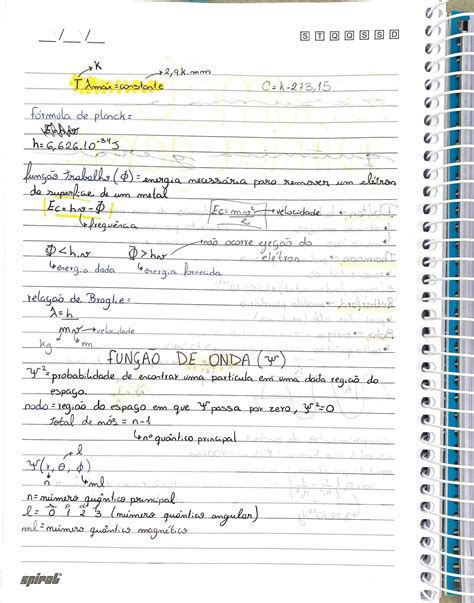 __/__/__ S T Q Q S S D
K 2,9k.mm
Tλmáx=constante C=k-273,15
Fórmula de planck=
h=6,626.10⁻³⁴J
função trabalho (Φ)=energia necessária para remover um elétron
da superfície de um metal
Ec=hν-Φ Ec=mv²/2 velocidade
frequência
não ocorre ejeção do
Φ<h.ν Φ>hν elétron
energia dada energia fornecida
relação de Broglie=
λ=h
mv velocidade
kg m
FUNÇÃO DE ONDA (Ψ)
Ψ²=probabilidade de encontrar uma partícula em uma dada região do
espaço.
nodo=região do espaço em que Ψ passa por zero, Ψ²=0
total de nós=n-1
nº quântico principal
l
Ψ(r, θ, ϕ)
n ml
n=número quântico principal
s p d f
l= 0 1 2 3 (número quântico angular)
ml=número quântico magnético
spiral